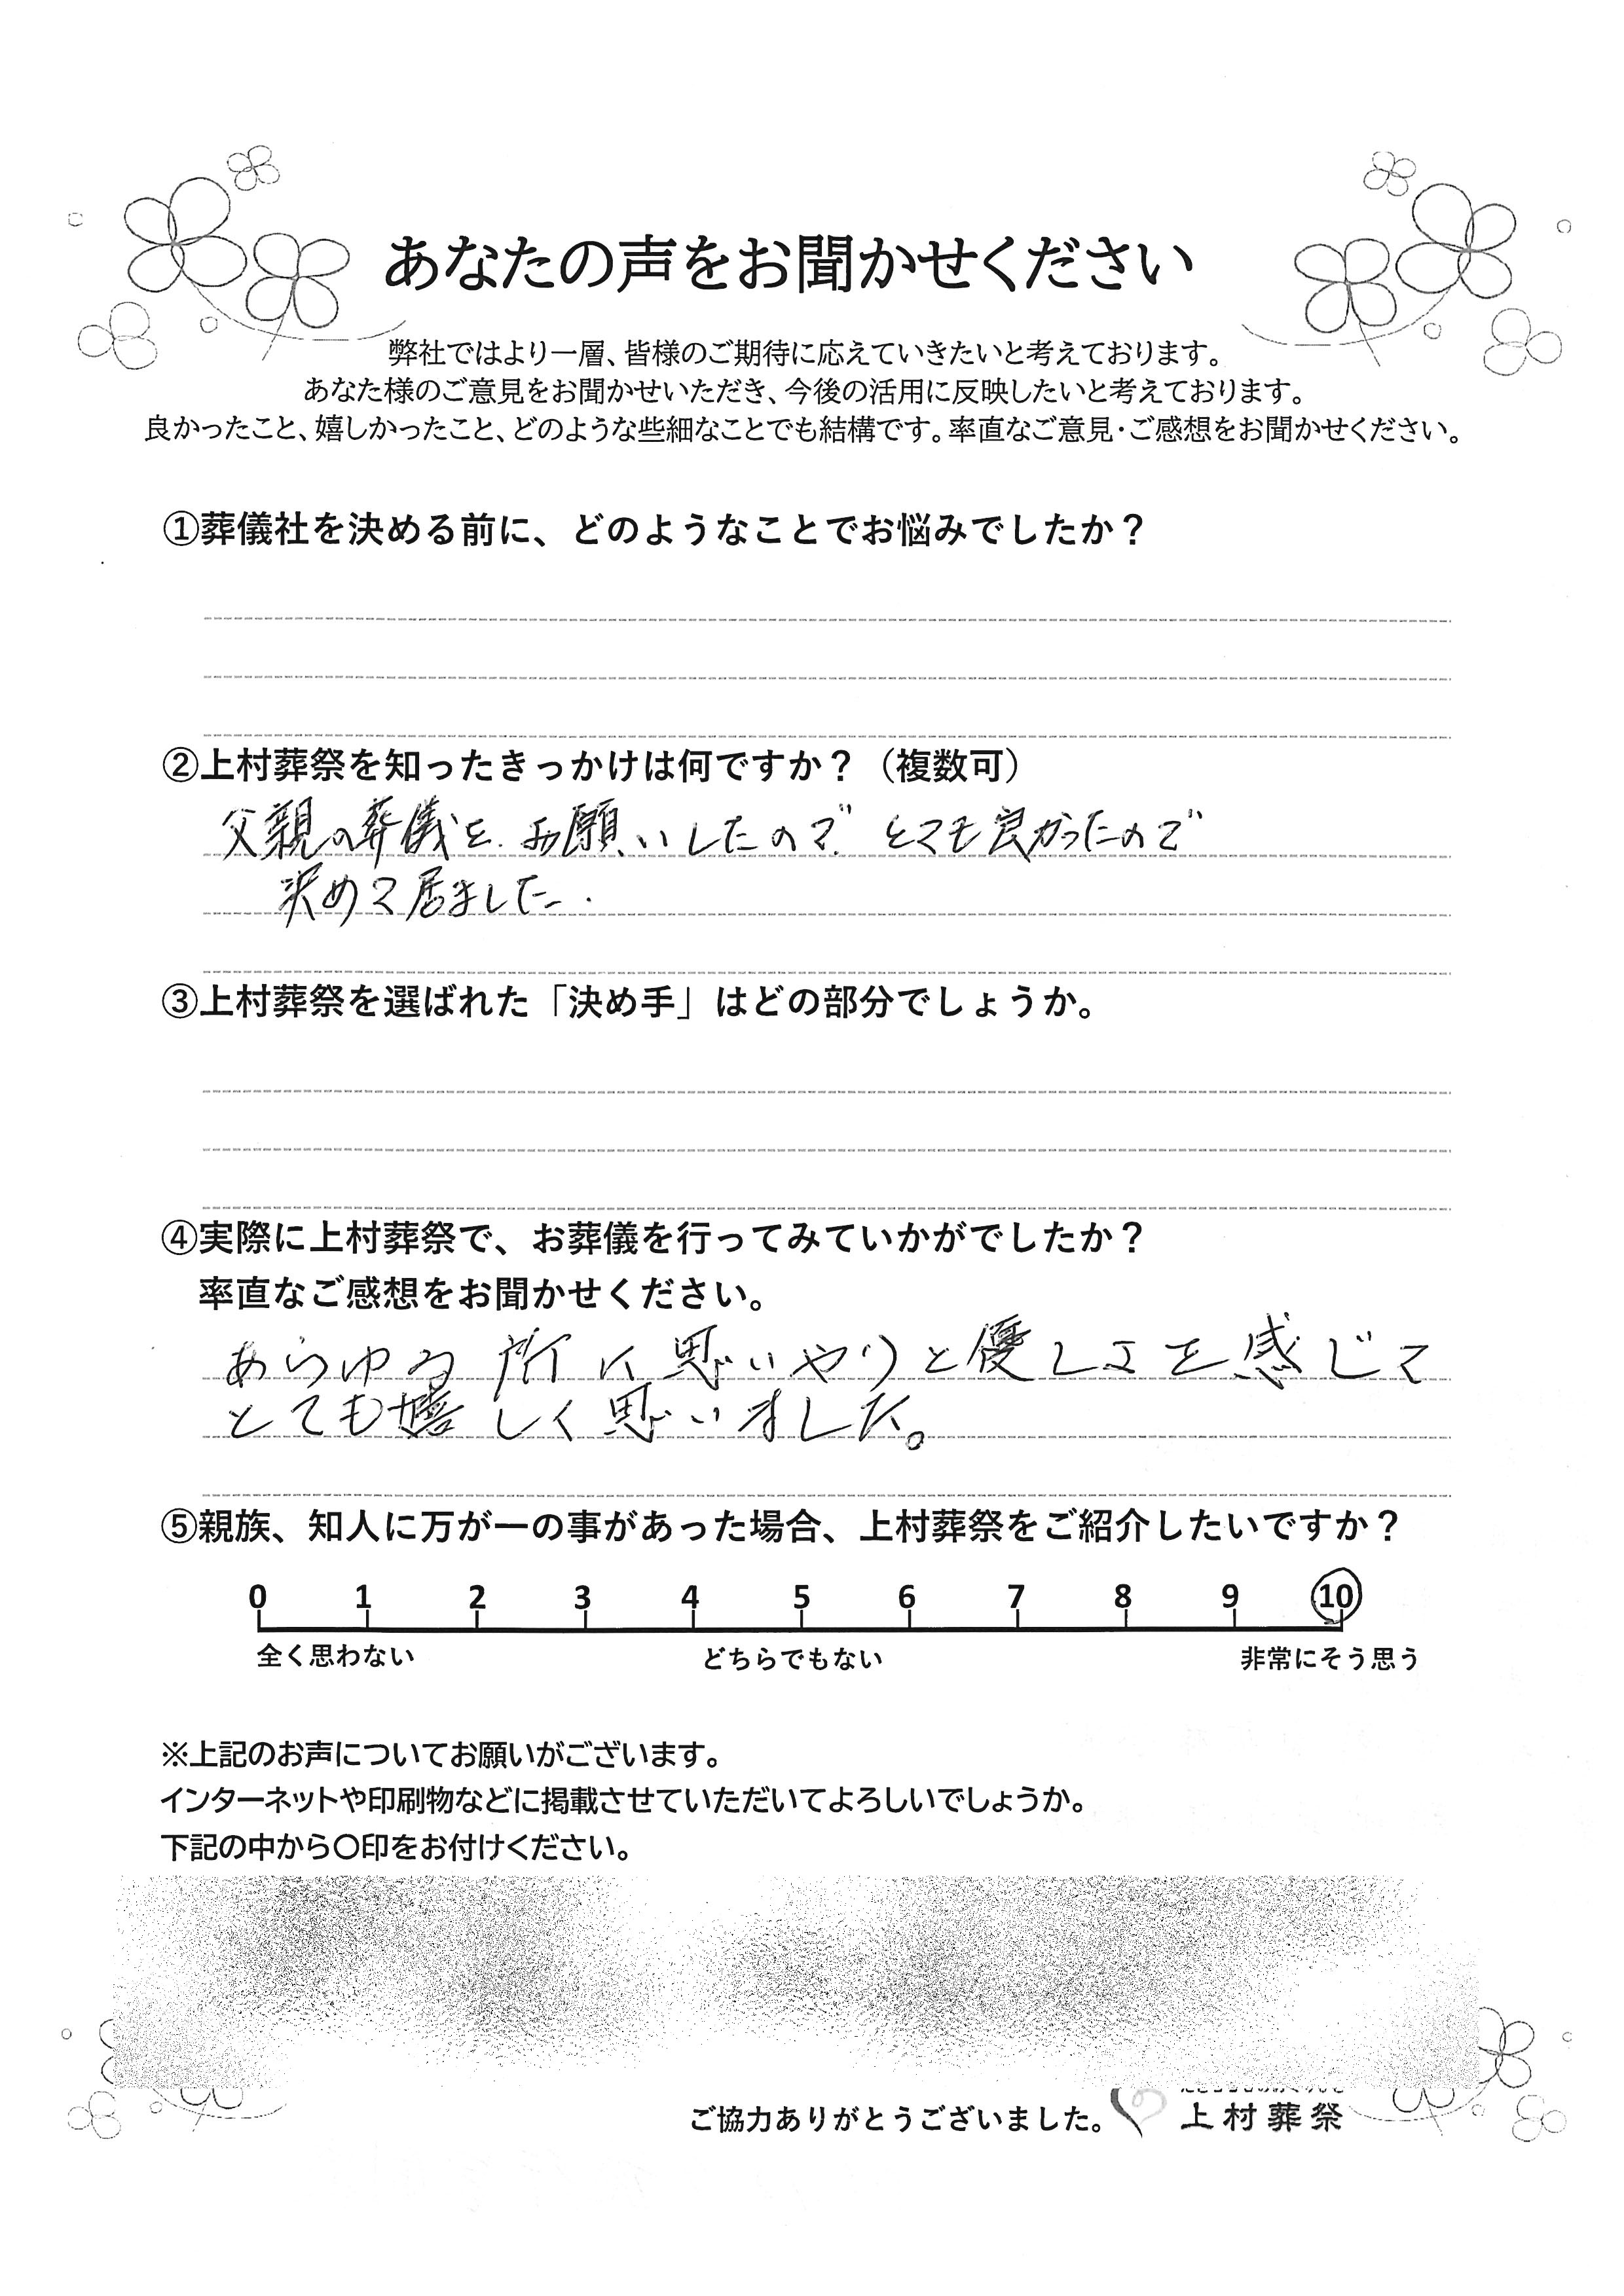 あなたの声をお聞かせください
弊社ではより一層、皆様のご期待に応えていきたいと考えております。
あなた様のご意見をお聞かせいただき、今後の活用に反映したいと考えております。
良かったこと、嬉しかったこと、どのような些細なことでも結構です。率直なご意見・ご感想をお聞かせください。
①葬儀社を決める前に、どのようなことでお悩みでしたか？
②上村葬祭を知ったきっかけは何ですか？（複数可）
父親の葬儀を、お願いしたので、とても良かったので
決めて居ました.
③上村葬祭を選ばれた「決め手」はどの部分でしょうか。
④実際に上村葬祭で、お葬儀を行ってみていかがでしたか？
率直なご感想をお聞かせください。
あらゆる所に思いやりと優しさを感じて
とても嬉しく思いました。
⑤親族、知人に万が一の事があった場合、上村葬祭をご紹介したいですか？
0 1 2 3 4 5 6 7 8 9 10
全く思わない どちらでもない 非常にそう思う
※上記のお声についてお願いがございます。
インターネットや印刷物などに掲載させていただいてよろしいでしょうか。
下記の中から〇印をお付けください。
ご協力ありがとうございました。 上村葬祭